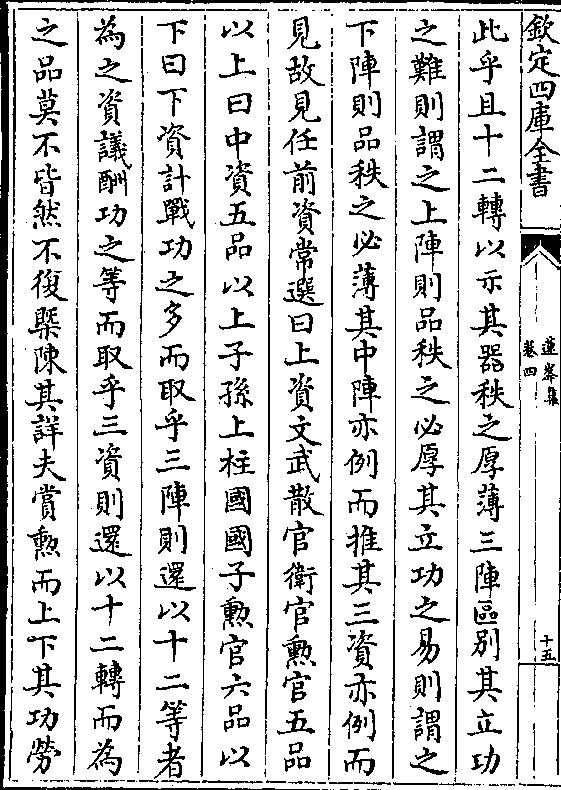 欽定四庫全書
蓮峯集
卷四
十五
此乎且十二轉以示其器秩之厚薄三陣區別其立功
之難則謂之上陣則品秩之必厚其立功之易則謂之
下陣則品秩之必薄其中陣亦例而推其三資亦例而
見故見任前資常選曰上資文武散官衛官勲官五品
以上曰中資五品以上子孫上柱國國子勲官六品以
下曰下資計戰功之多而取乎三陣則還以十二等者
為之資議酬功之等而取乎三資則還以十二轉而為
之品莫不皆然不復槩陳其詳夫賞勲而上下其功勞